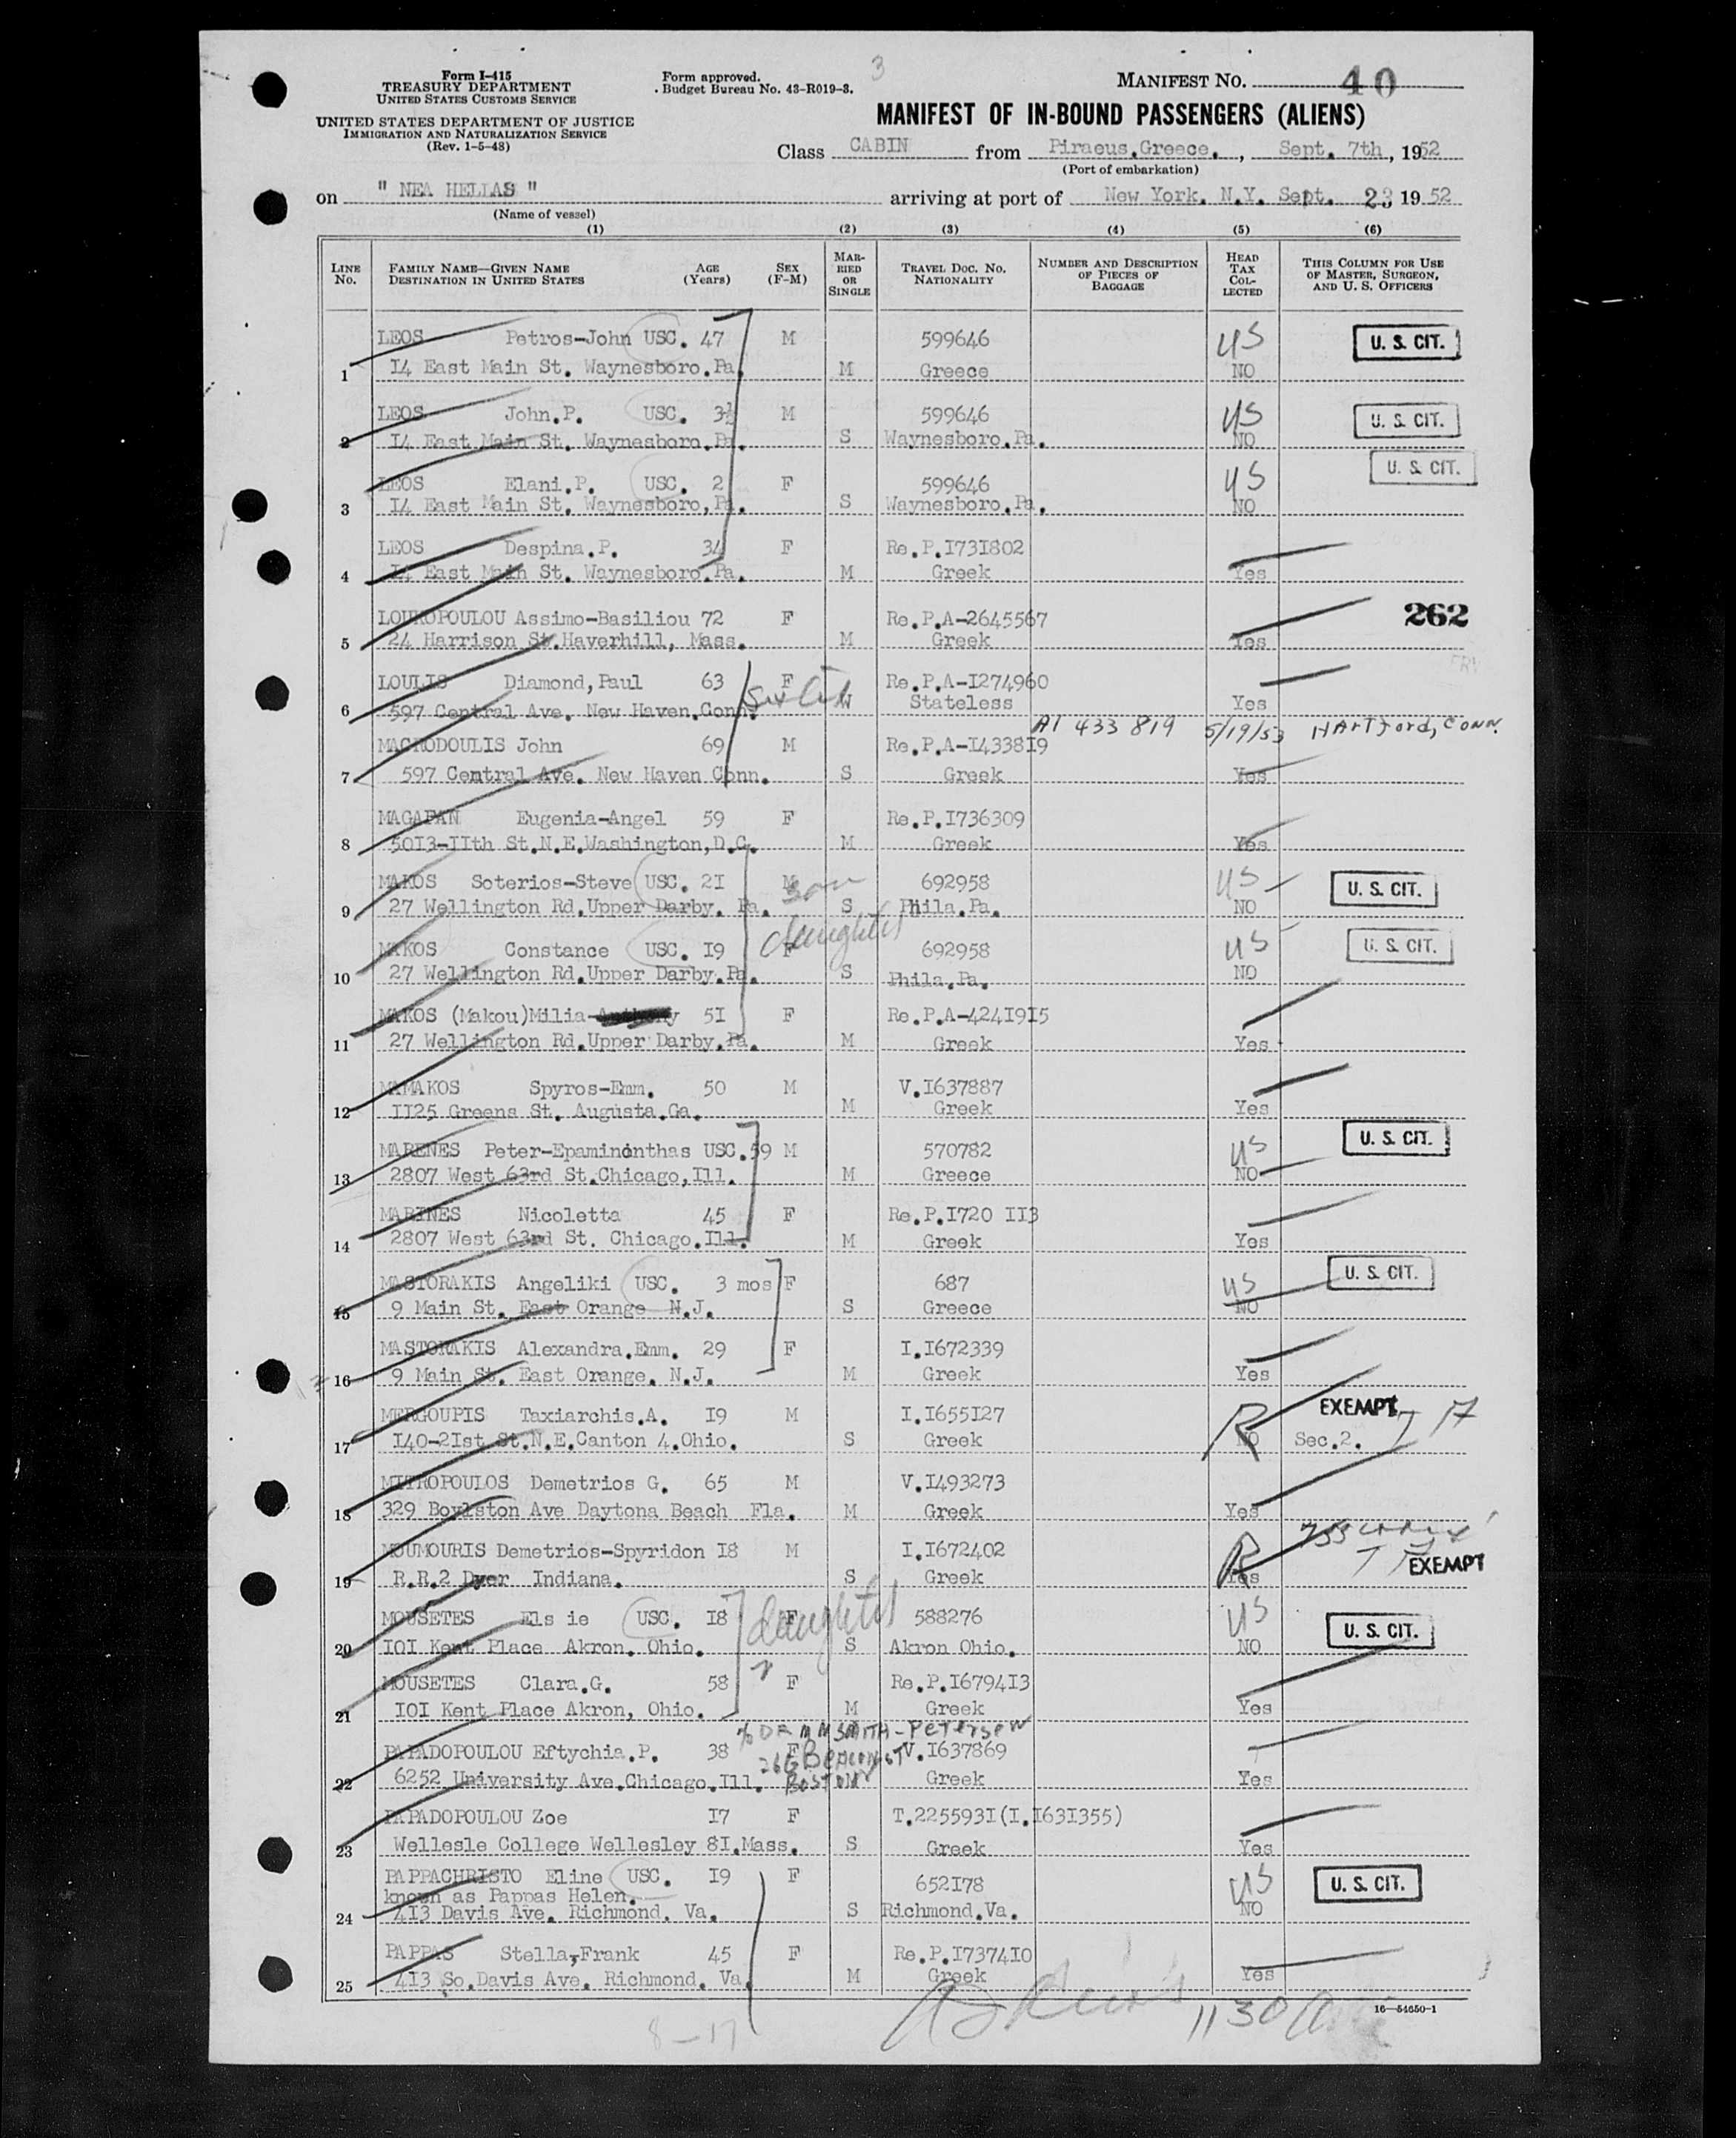 Form I-415
TREASURY DEPARTMENT
UNITED STATES CUSTOMS SERVICE
UNITED STATES DEPARTMENT OF JUSTICE
IMMIGRATION AND NATURALIZATION SERVICE
(Rev. 1-5-48)
Form approved.
Budget Bureau No. 43-R019-3.
3
MANIFEST NO. 40
MANIFEST OF IN-BOUND PASSENGERS (ALIENS)
Class CABIN from Piraeus.Greece. , Sept. 7th , 1952
(Port of embarkation)
on " NEA HELLAS " arriving at port of New York. N.Y. Sept. 23 1952
(Name of vessel)
(1) (2) (3) (4) (5) (6)
LINE No. FAMILY NAME—GIVEN NAME DESTINATION IN UNITED STATES AGE (Years) SEX (F-M) MARRIED OR SINGLE TRAVEL DOC. NO. NATIONALITY NUMBER AND DESCRIPTION OF PIECES OF BAGGAGE HEAD TAX COLLECTED THIS COLUMN FOR USE OF MASTER, SURGEON, AND U. S. OFFICERS
LEOS Petros-John USC. 47 M 599646 US U. S. CIT.
1 14 East Main St. Waynesboro.Pa. M Greece NO
LEOS John.P. USC. 3½ M 599646 US U. S. CIT.
2 14 East Main St. Waynesboro.Pa. S Waynesboro.Pa. NO
LEOS Elani.P. USC. 2 F 599646 US U. S. CIT.
3 14 East Main St. Waynesboro,Pa. S Waynesboro.Pa. NO
LEOS Despina.P. 34 F Re.P.I731802
4 14 East Main St. Waynesboro.Pa. M Greek Yes
LOUKOPOULOU Assimo-Basiliou 72 F Re.P.A-2645567 262
5 24 Harrison St.Haverhill, Mass. M Greek Yes
LOULIS Diamond,Paul 63 F Re.P.A-I274960
6 597 Central Ave. New Haven.Conn. W Stateless Yes
A1 433 819 5/19/53 HARTford, CONN.
MACRODOULIS John 69 M Re.P.A-I433819
7 597 Central Ave. New Haven Conn. S Greek Yes
MAGAFAN Eugenia-Angel 59 F Re.P.I736309
8 5013-IIth St.N.E.Washington,D.C. M Greek Yes
MAKOS Soterios-Steve USC. 2I M son 692958 US U. S. CIT.
9 27 Wellington Rd.Upper Darby. Pa. S Phila.Pa. NO
daughter
MAKOS Constance USC. I9 F 692958 US U. S. CIT.
10 27 Wellington Rd.Upper Darby.Pa. S Phila.Pa. NO
MAKOS (Makou)Milia- 5I F Re.P.A-424I9I5
11 27 Wellington Rd.Upper Darby.Pa. M Greek Yes
MAMAKOS Spyros-Emm. 50 M V.I637887
12 II25 Greens St. Augusta.Ga. M Greek Yes
MARENES Peter-Epaminonthas USC.59 M 570782 US U. S. CIT.
13 2807 West 63rd St.Chicago,Ill. M Greece NO
MARINES Nicoletta 45 F Re.P.I720 II3
14 2807 West 63rd St. Chicago.Ill. M Greek Yes
MASTORAKIS Angeliki USC. 3 mos F 687 US U. S. CIT.
15 9 Main St. East Orange N.J. S Greece NO
MASTORAKIS Alexandra.Emm. 29 F I.I672339
16 9 Main St. East Orange. N.J. M Greek Yes
MERGOUPIS Taxiarchis.A. I9 M I.I655I27 R EXEMPT
17 I40-2Ist St.N.E.Canton 4.Ohio. S Greek NO Sec.2.
MITROPOULOS Demetrios G. 65 M V.I493273
18 329 Boylston Ave Daytona Beach Fla. M Greek Yes
MOUMOURIS Demetrios-Spyridon I8 M I.I672402 R EXEMPT
19 R.R.2 Dyer Indiana. S Greek Yes
MOUSETES Els ie USC. I8 F daughter 588276 US U. S. CIT.
20 IOI Kent Place Akron. Ohio. S Akron Ohio. NO
MOUSETES Clara.G. 58 F Re.P.I6794I3
21 IOI Kent Place Akron, Ohio. M Greek Yes
SMITH-Petersen
PAPADOPOULOU Eftychia.P. 38 F V.I637869
266 Beacon ST
22 6252 University Ave.Chicago.Ill. Greek Yes
BOSTON
PAPADOPOULOU Zoe I7 F T.225593I(I.I63I355)
23 Wellesle College Wellesley 8I.Mass. S Greek Yes
PAPPACHRISTO Eline USC. I9 F 652I78 US U. S. CIT.
known as Pappas Helen.
24 4I3 Davis Ave. Richmond. Va. S Richmond.Va. NO
PAPPAS Stella,Frank 45 F Re.P.I7374IO
25 4I3 So.Davis Ave. Richmond. Va. M Greek Yes
16—54650-1
8-17 1130